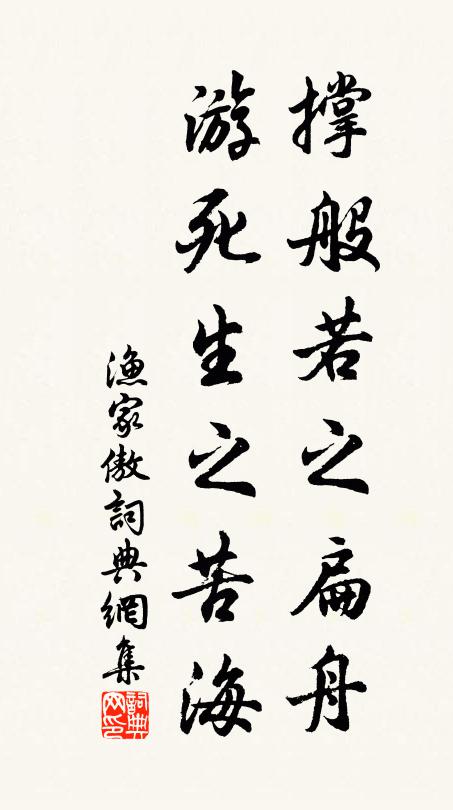 撑般若之扁舟
游死生之苦海
漁家傲詞典網集
詞典网印